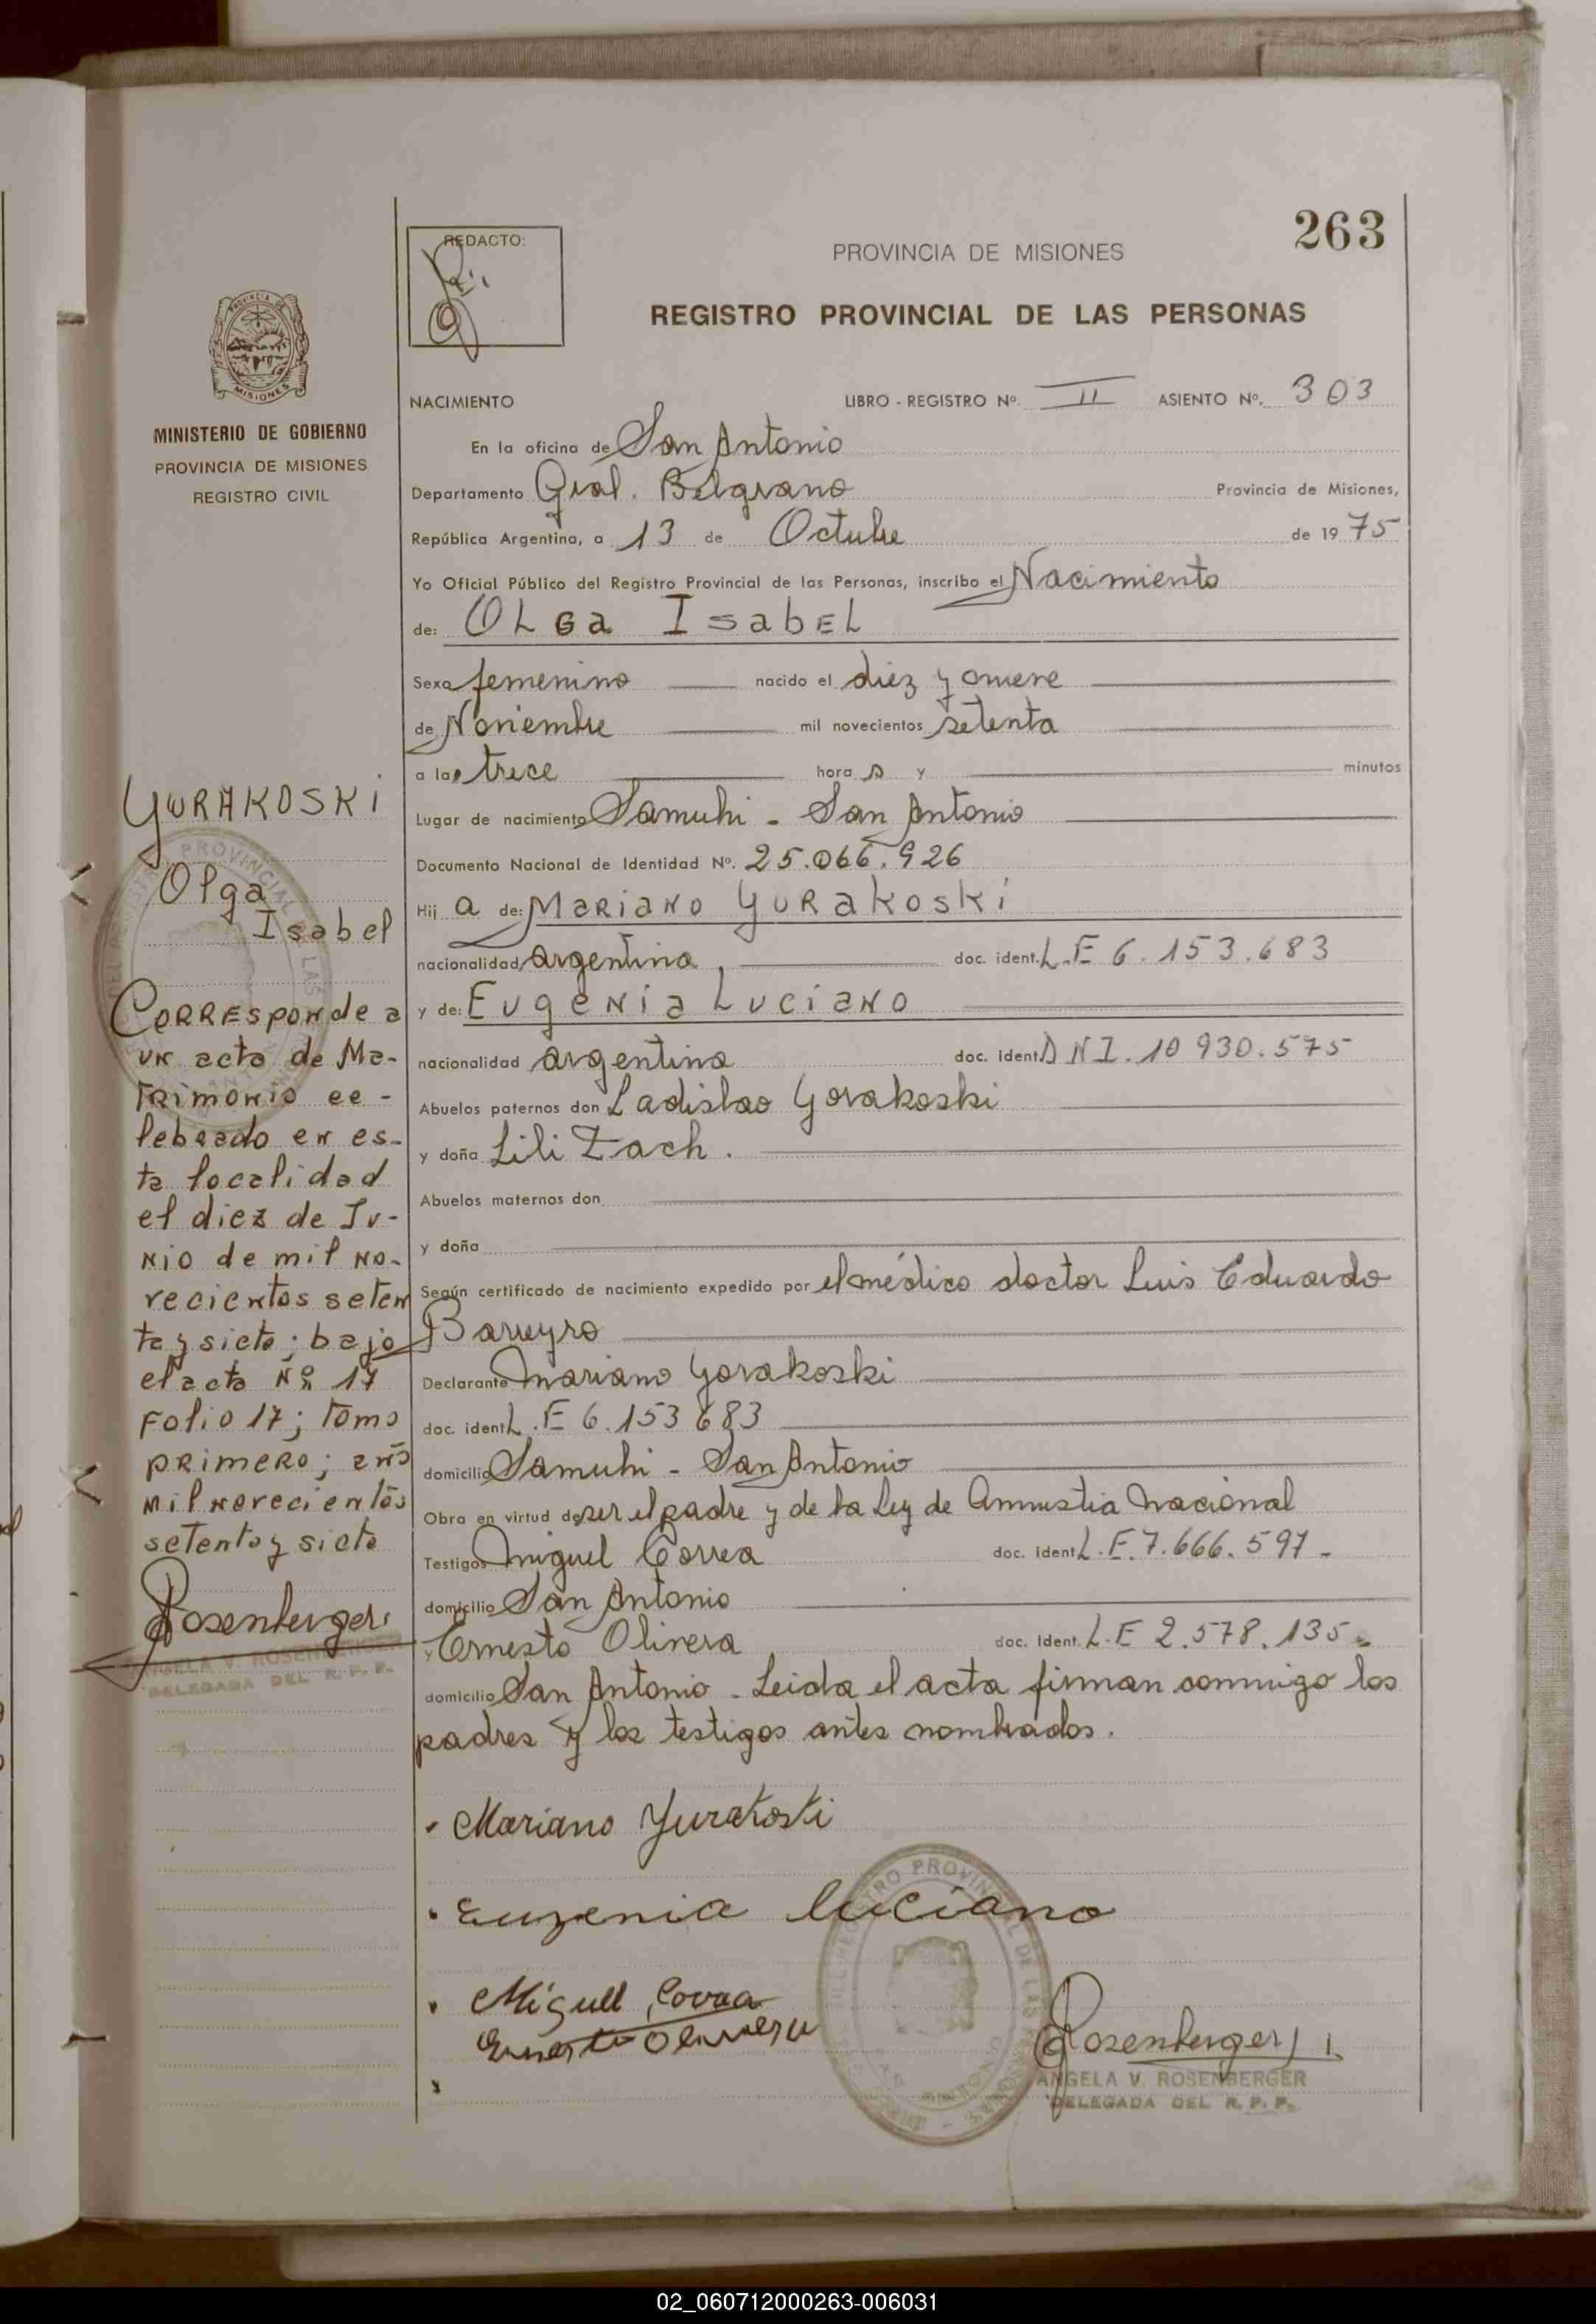 263
REDACTO:
PROVINCIA DE MISIONES
REGISTRO PROVINCIAL DE LAS PERSONAS
PROVINCIA DE
MISIONES
MINISTERIO DE GOBIERNO
PROVINCIA DE MISIONES
REGISTRO CIVIL
NACIMIENTO LIBRO - REGISTRO Nº. II ASIENTO Nº. 303
En la oficina de San Antonio
Departamento Gral. Belgrano Provincia de Misiones,
República Argentina, a 13 de Octubre de 1975
Yo Oficial Público del Registro Provincial de las Personas, inscribo el Nacimiento
de: OLGa IsabEL
Sexo femenino nacido el diez y nueve
de Noviembre mil novecientos setenta
a las trece horas y minutos
Lugar de nacimiento Samuhi - San Antonio
Documento Nacional de Identidad Nº. 25.066.926
Hija de: Mariano Yurakoski
nacionalidad argentina, doc. ident. L.E 6.153.683
y de: Eugenia Luciano
nacionalidad argentina doc. ident. DNI. 10 930.575
Abuelos paternos don Ladislao Yorakoski
y doña Lili Zach.
Abuelos maternos don
y doña
Según certificado de nacimiento expedido por el médico doctor Luis Eduardo
Barreyro
Declarante Mariano Yorakoski
doc. ident L.E 6.153 683
domicilio Samuhi - San Antonio
Obra en virtud de ser el padre y de la Ley de Amnistia Nacional
Testigos Miguel Correa doc. ident L.E.7.666.597-
domicilio San Antonio
y Ernesto Olivera doc. Ident. L.E 2.578.135.
domicilio San Antonio - Leida el acta firman conmigo los
padres y los testigos antes nombrados.
YURAKOSKI
Olga
Isabel
Corresponde a
un acta de Ma-
trimonio ce-
lebrado en es-
ta localidad
el diez de Ju-
nio de mil no-
vecientos seten
ta y siete; bajo
el acta Nº 17
Folio 17; tomo
primero; año
mil novecientos
setenta y siete
Rosenberger
ANGELA V. ROSENBERGER
DELEGADA DEL R. P. P.
Mariano Yurakoski
Eugenia luciano
Miguel Correa
Ernesto Olivera
Rosenberger
ANGELA V. ROSENBERGER
DELEGADA DEL R. P. P.
02_060712000263-006031